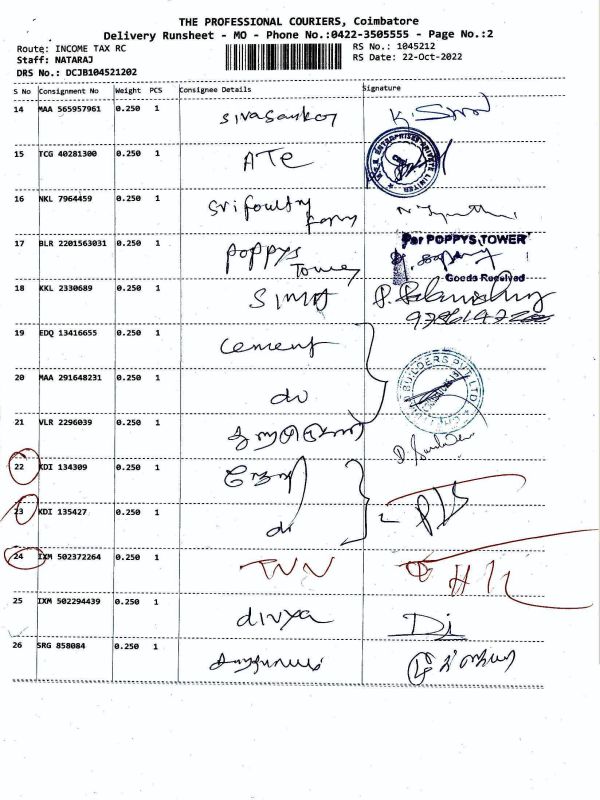 THE PROFESSIONAL COURIERS, Coimbatore
Delivery Runsheet - MO - Phone No.:0422-3505555 - Page No.:2
Route: INCOME TAX RC
RS No.: 1045212
Staff: NATARAJ
RS Date: 22-Oct-2022
DRS No.: DCJB104521202
S No Consignment No Weight PCS Consignee Details Signature
14 MAA 565957961 0.250 1
15 TCG 40281300 0.250 1 ATE
ENTERPRISES PRIVATE LIMITED
16 NKL 7964459 0.250 1 Sri Poultry
17 BLR 2201563031 0.250 1 Poppys
Tower
Per POPPYS TOWER
Goods Received
18 KKL 2330689 0.250 1
19 EDQ 13416655 0.250 1 cement
20 MAA 291648231 0.250 1 do
BUILDERS PVT LTD
21 VLR 2296039 0.250 1
22 KDI 134309 0.250 1
23 KDI 135427 0.250 1 do
24 IXM 502372264 0.250 1 TVV
25 IXM 502294439 0.250 1 divya
26 SRG 858084 0.250 1